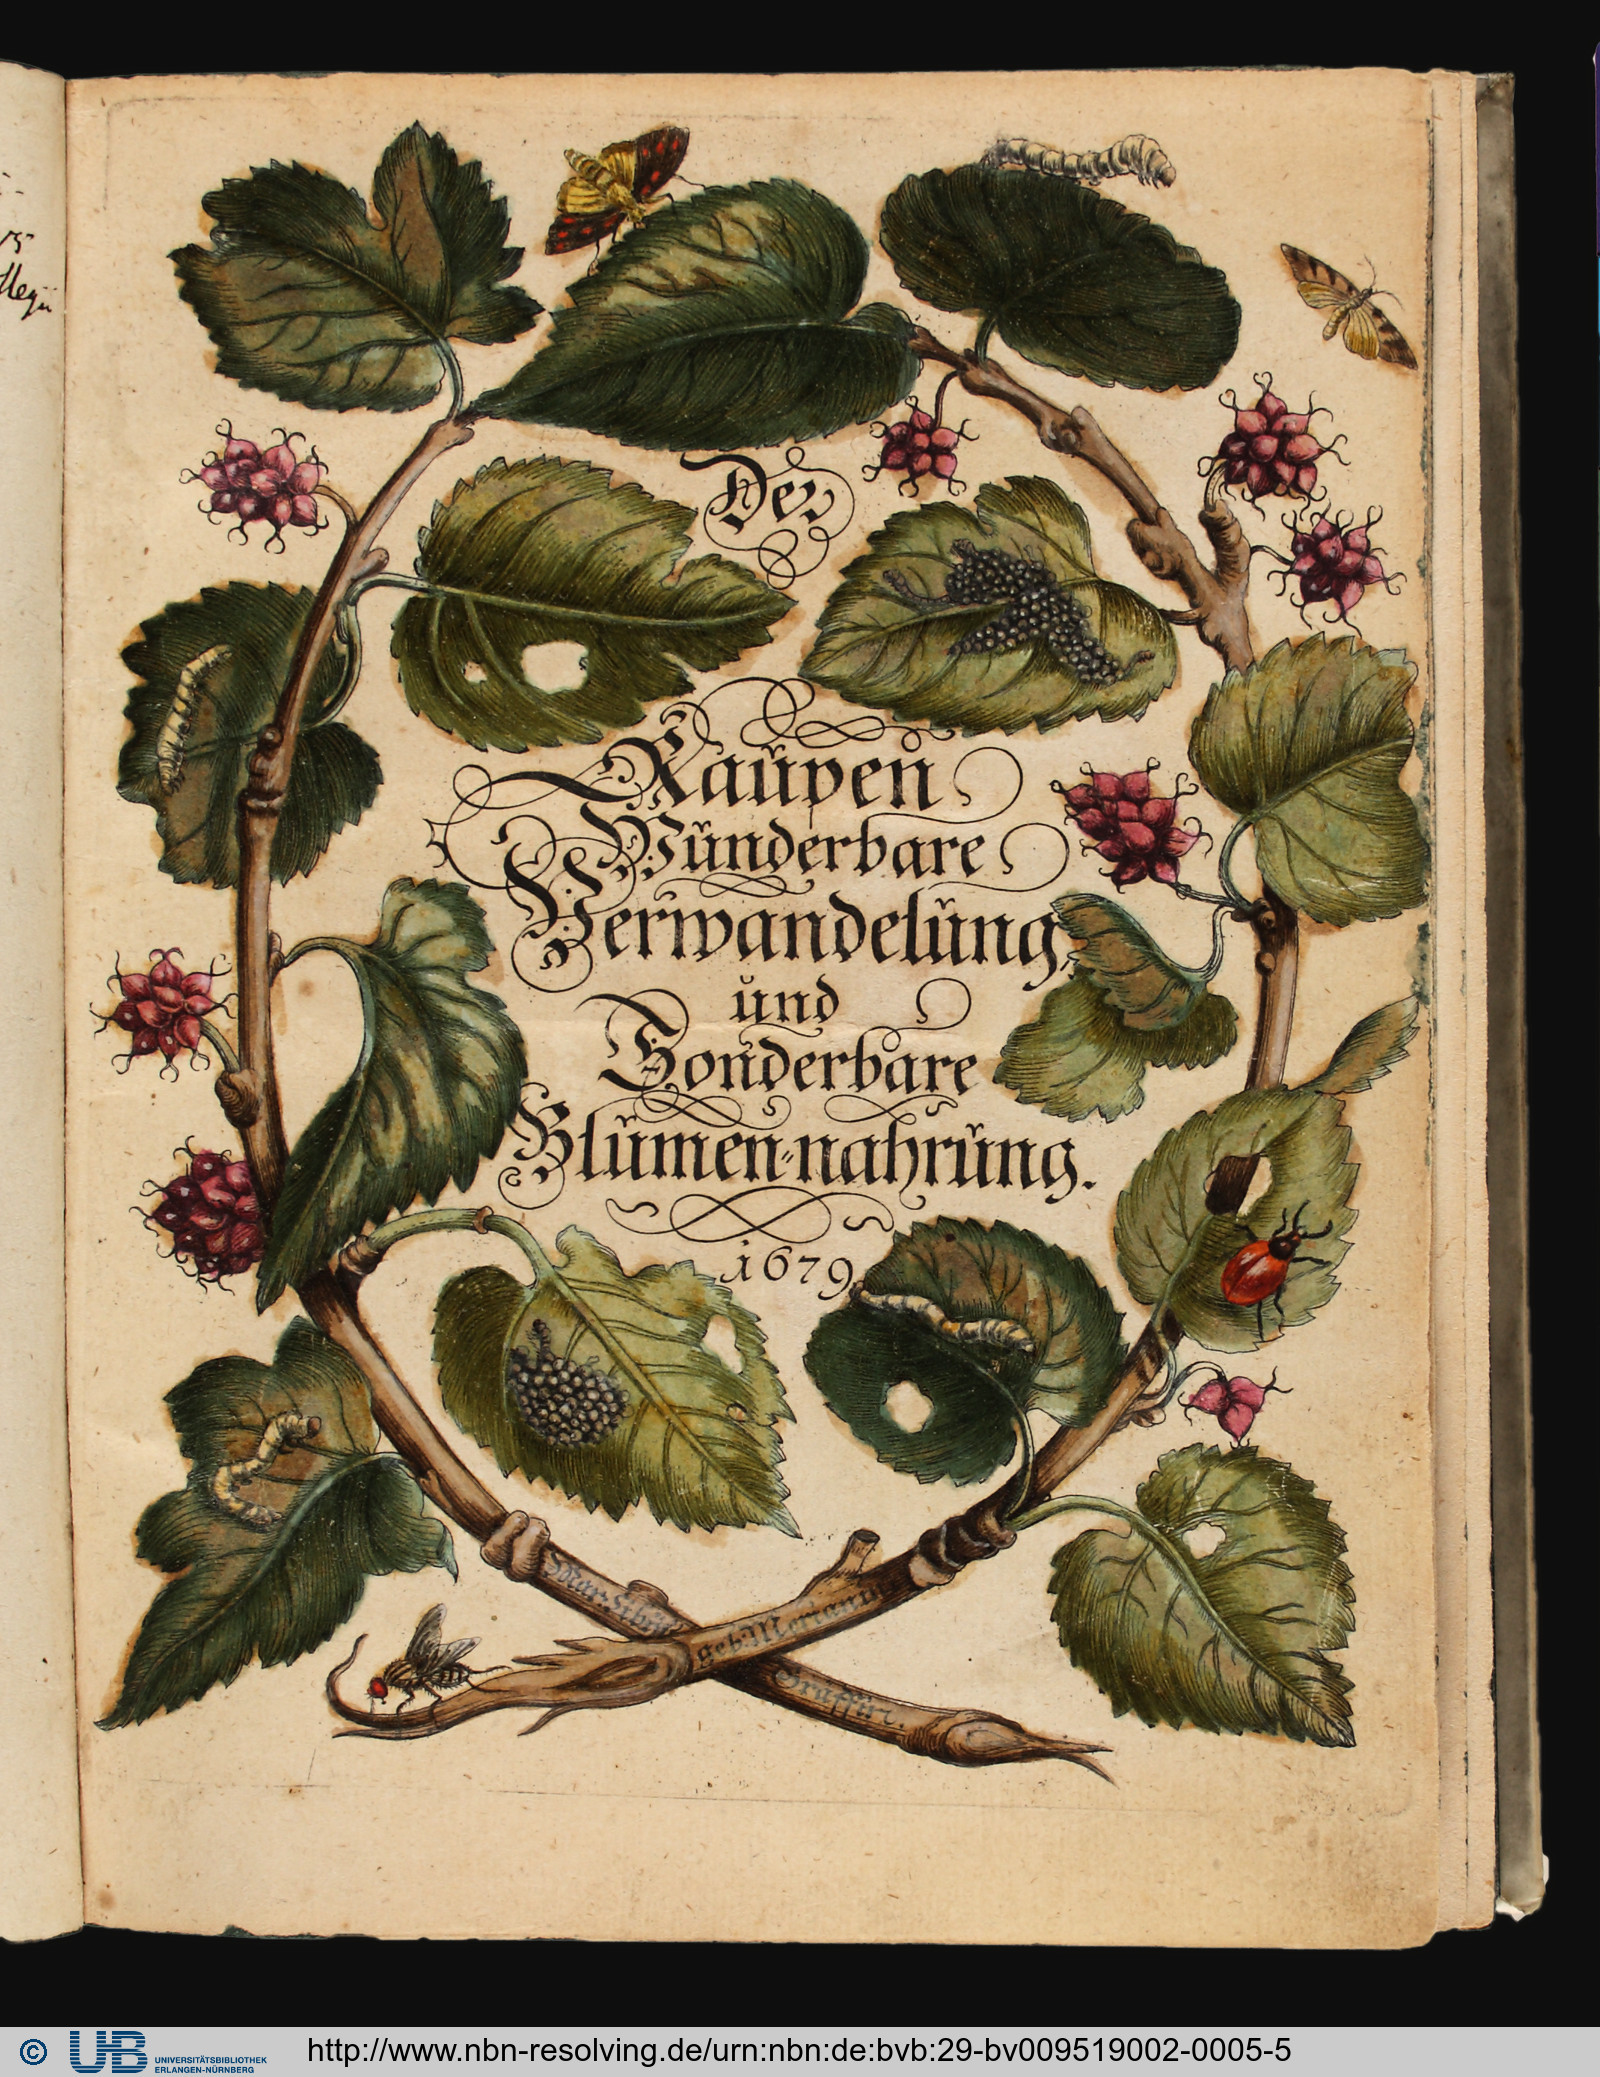 Der
Raŭpen
Wŭnderbare
Verwandelŭng,
ŭnd
Sonderbare
Blŭmen-nahrŭng.
1679
geb: Merianin
Gräffin.
© UB UNIVERSITÄTSBIBLIOTHEK
ERLANGEN-NÜRNBERG
http://www.nbn-resolving.de/urn:nbn:de:bvb:29-bv009519002-0005-5